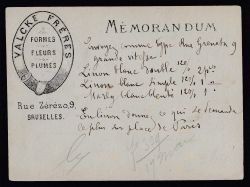 VALCKE FRÈRES
FORMES
FLEURS
PLUMES
Rue Zérézo, 9,
BRUXELLES.
MÉMORANDUM
Envoyez comme type Rue Grenata 9
grande vitesse
Linon blanc double 120/
Linon blanc simple 120/ 1
Marly blanc 120/ 1
En linon donne, ce qui se demande
le plus sur place de Paris